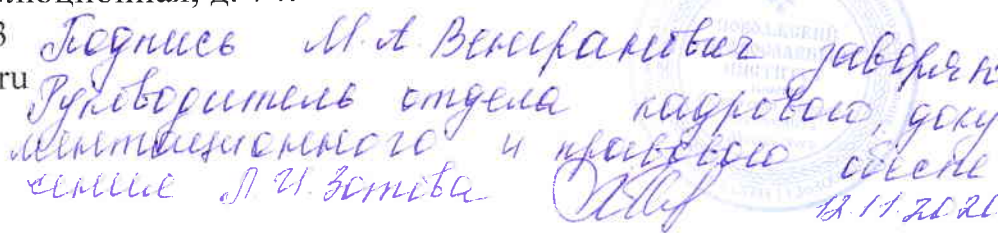 люционная, д. 44.
3
Подпись М.А. Венгранович заверяю
ru
Руководитель отдела кадрового, доку
ментационного и правового обеспе
чения Л.И. Зотова
12.11.2020